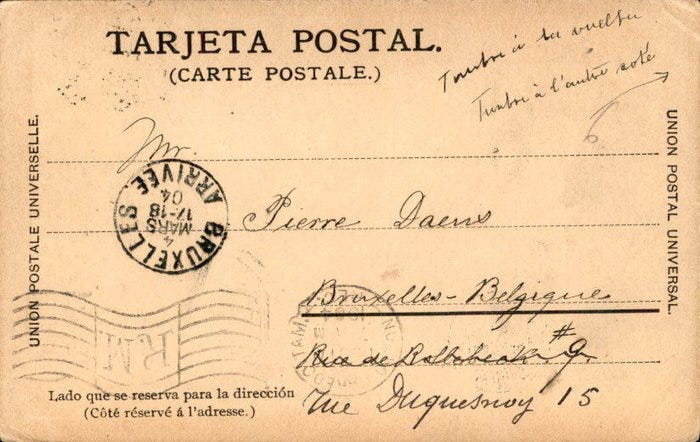 TARJETA POSTAL.
(CARTE POSTALE.)
Timbre à la vuelta
Timbre à l'autre coté
UNION POSTALE UNIVERSELLE.
UNION POSTAL UNIVERSAL.
Mr.
Pierre Daens
Bruxelles-Belgique
Rue de #9.
rue Duquesnoy 15
BRUXELLES
4
MARS
17-18
04
ARRIVÉE
RM
Lado que se reserva para la dirección
(Côté réservé á l'adresse.)